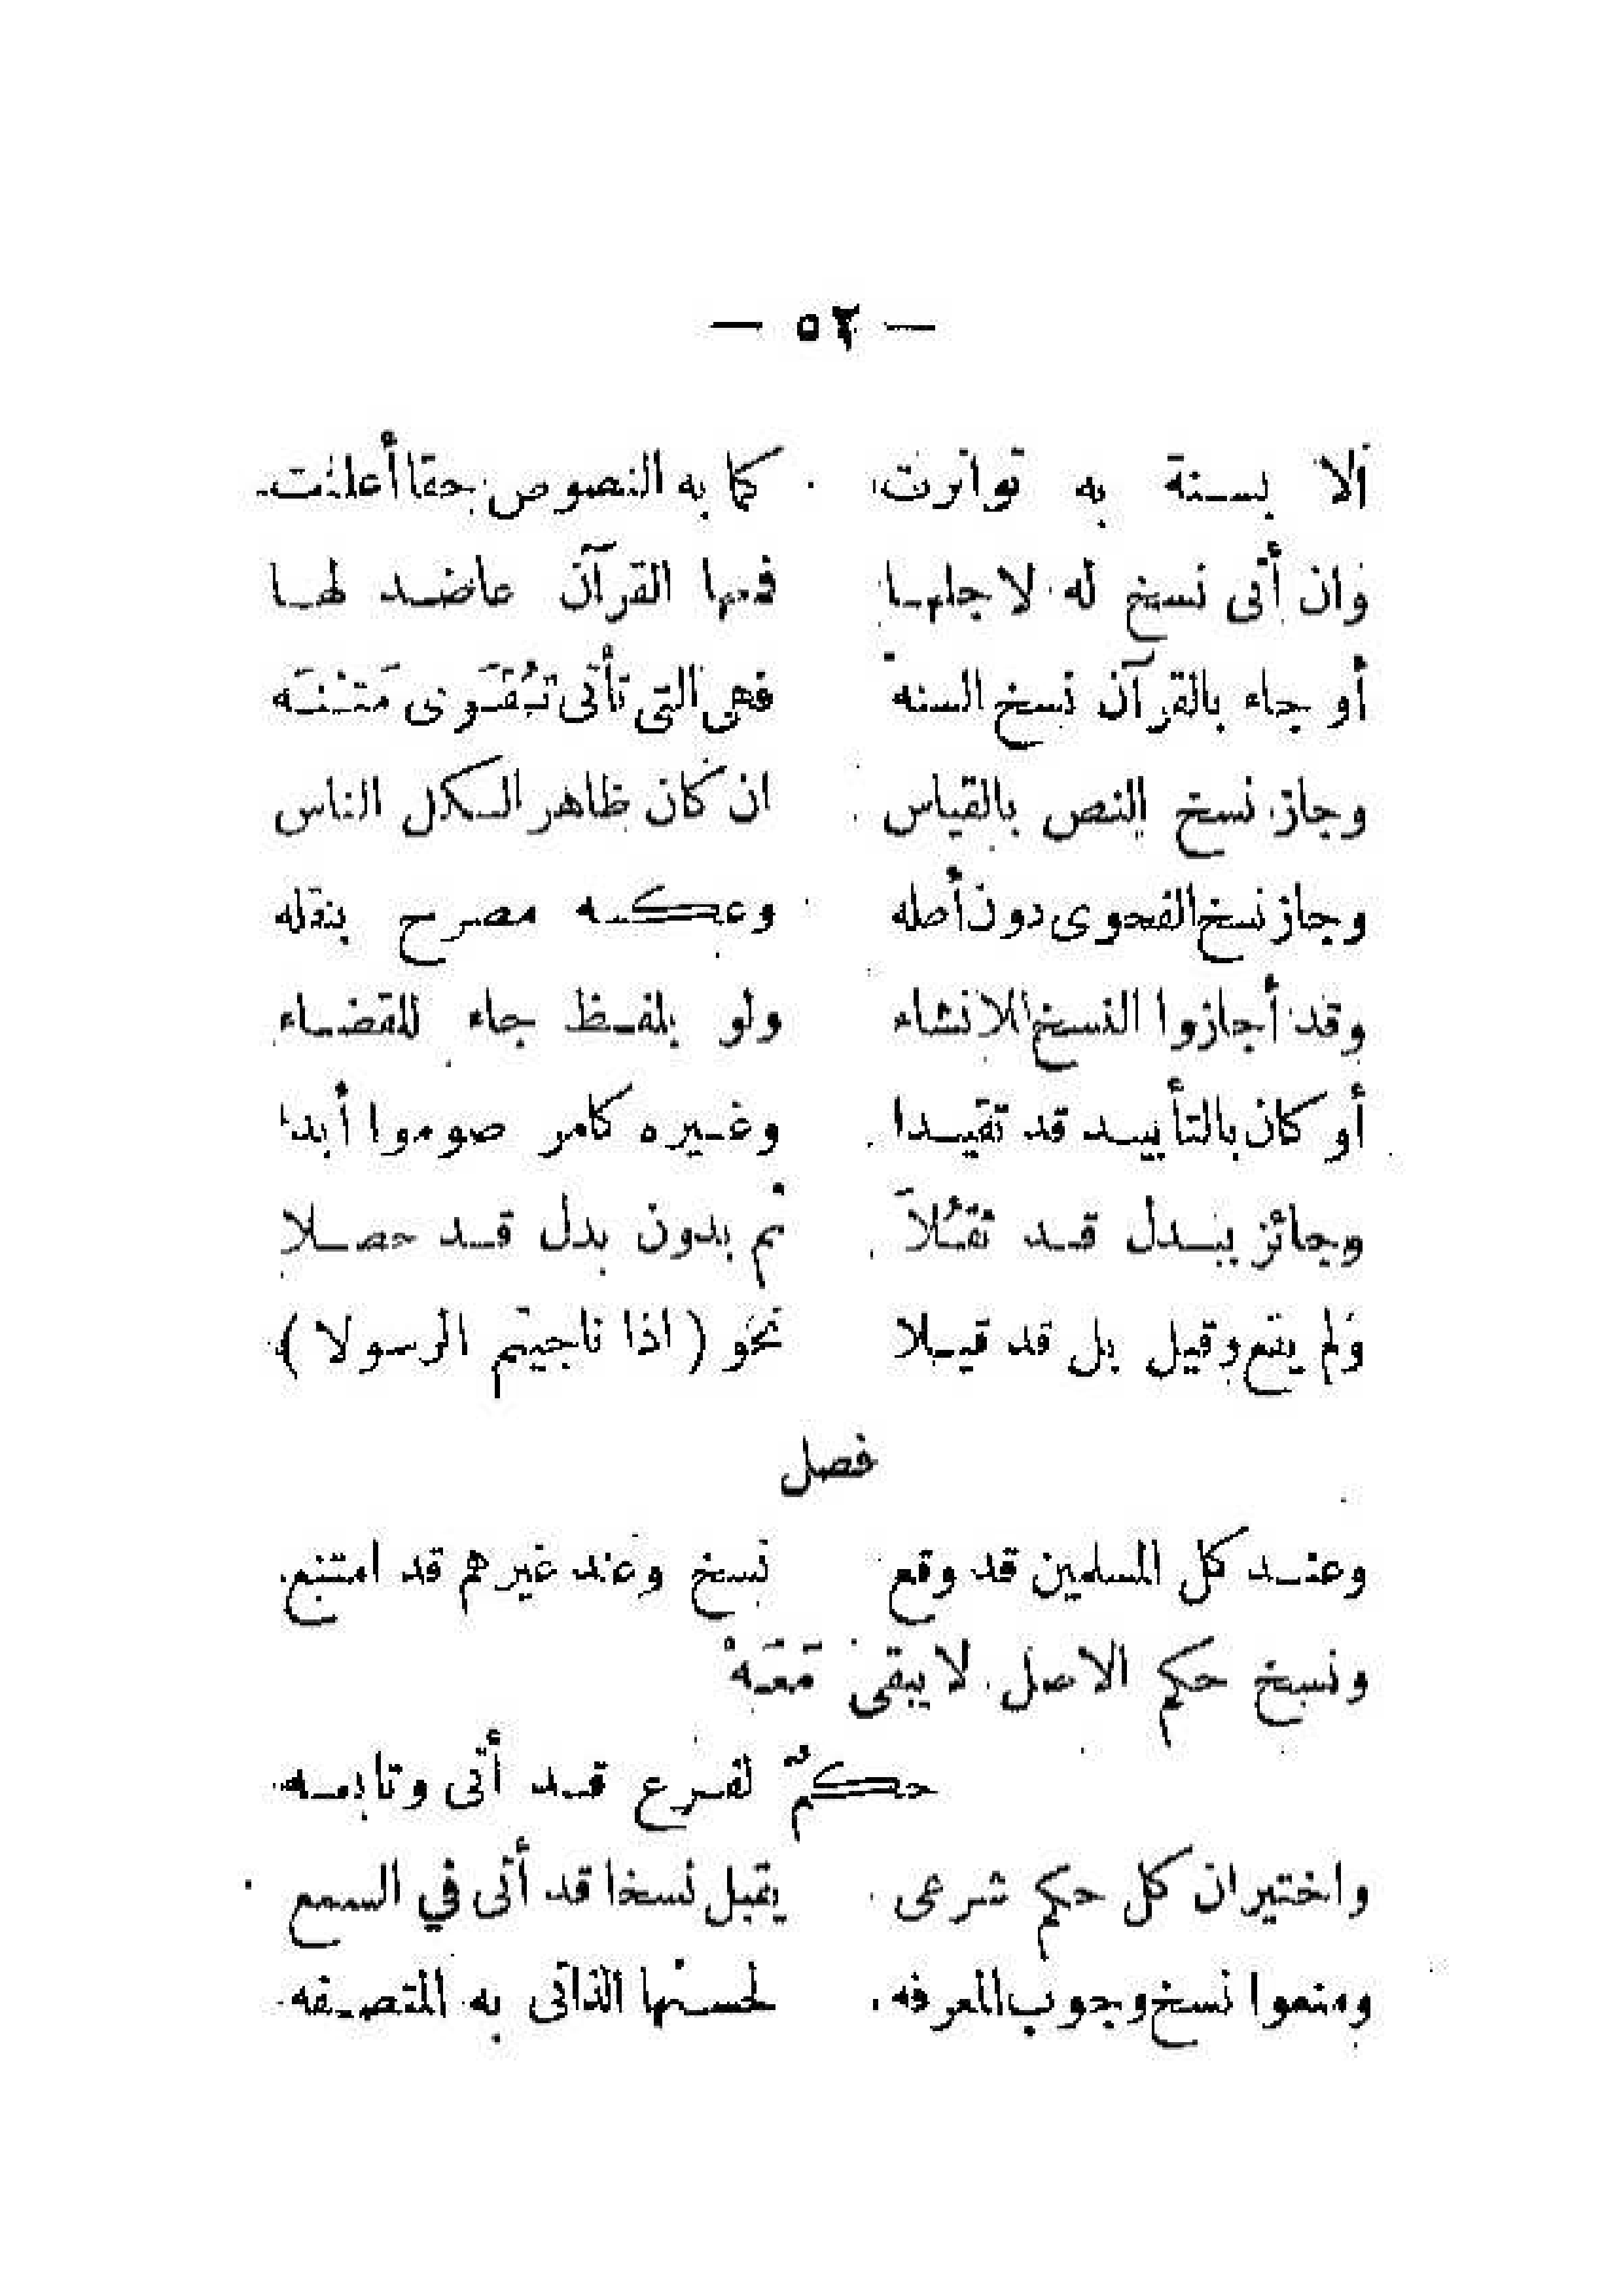 — ٥٢ —
ألا بسنة به تواترت كما به النصوص حقا أعلنت
وان أتى نسخ له لاجلها فمها القرآن عاضد لها
أو جاء بالقرآن نسخ السنه فهى التى تأتى تُقَوى مَتْنَه
وجاز نسخ النص بالقياس ان كان ظاهر الكل الناس
وجاز نسخ الفحوى دون أصله وعكسه مصرح بنقله
وقد أجازوا النسخ للانشاء ولو بلفظ جاء للقضاء
أو كان بالتأبيد قد تقيدا وغيره كامر صوموا أبدا
وجائز ببدل قد ثقُلاَ ثم بدون بدل قد حصلا
ولم يقع وقيل بل قد قيلا نحو ( اذا ناجيتم الرسولا )
فصل
وعند كل المسلمين قد وقع نسخ وعند غيرهم قد امتنع
ونسخ حكم الاصل لا يبقى مَعَهْ
حكمٌ لفرع قد أتى وتابعه
واختير ان كل حكم شرعى يقبل نسخا قد أتى في السمع
ومنعوا نسخ وجوب المعرفه لحسنها الذاتى به المتصفه